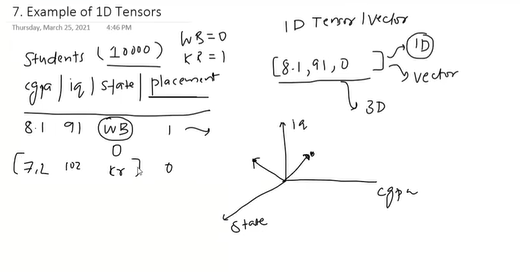 7. Example of 1D Tensors
Thursday, March 25, 2021 4:46 PM
Students (10000)
WB = 0
KR = 1
cgpa | iq | state | placement
8.1 91 WB 1
0
[7.2 102 Kr] 0
1D Tensor/Vector
[8.1, 91, 0]
1D
vector
3D
Iq
cgpa
State